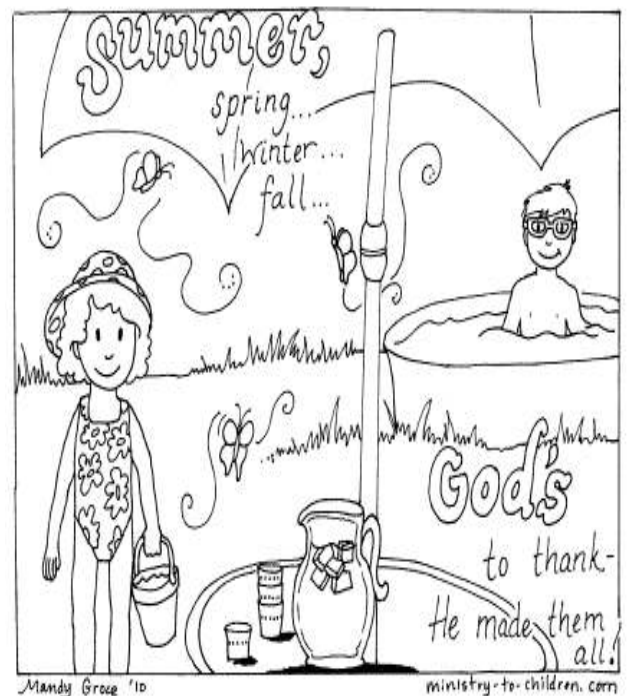 Summer,
spring...
winter...
fall...
God's
to thank-
He made them
all!
Mandy Groce '10
ministry-to-children.com